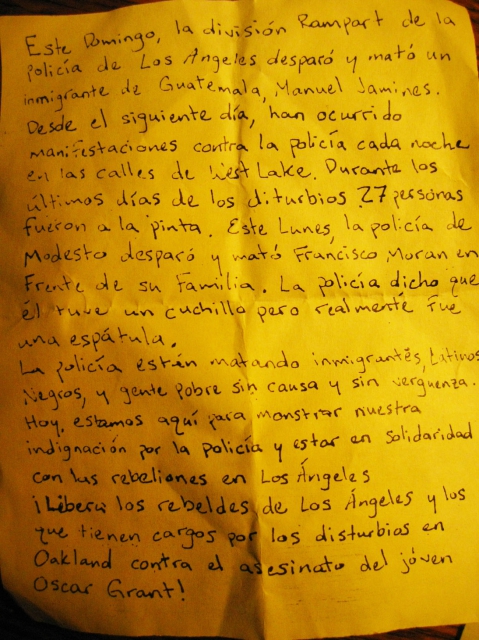 Este Domingo, la división Rampart de la
policía de Los Angeles desparó y mató un
inmigrante de Guatemala, Manuel Jamines.
Desde el siguiente día, han ocurrido
manifestaciones contra la policía cada noche
en las calles de West Lake. Durante los
últimos días de los diturbios 27 personas
fueron a la pinta. Este Lunes, la policía de
Modesto desparó y mató Francisco Moran en
Frente de su Familia. La policía dicho que
él tuve un cuchillo pero realmente fue
una espátula.
La policía están matando inmigrantes, Latinos
Negros, y gente pobre sin causa y sin verguenza.
Hoy, estamos aquí para monstrar nuestra
indignación por la policía y estar en solidaridad
con las rebeliones en Los Ángeles
¡Libera los rebeldes de Los Ángeles y los
que tienen cargos por los disturbios en
Oakland contra el asesinato del jóven
Oscar Grant!